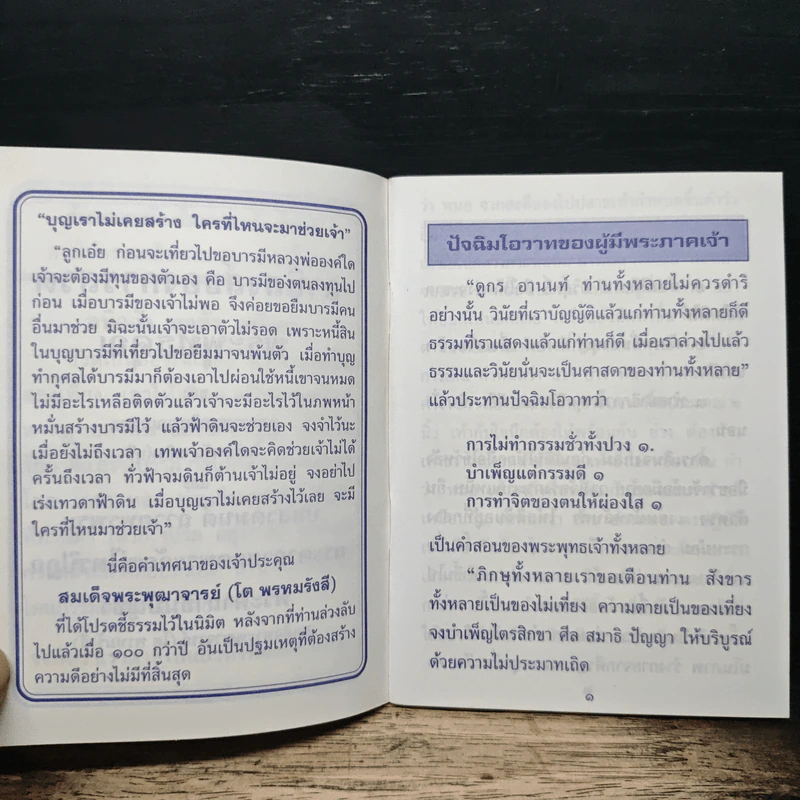 “บุญเราไม่เคยสร้าง ใครที่ไหนจะมาช่วยเจ้า”
“ลูกเอ๋ย ก่อนจะเที่ยวไปขอบารมีหลวงพ่อองค์ใด
เจ้าจะต้องมีทุนของตัวเอง คือ บารมีของตนลงทุนไป
ก่อน เมื่อบารมีของเจ้าไม่พอ จึงค่อยขอยืมบารมีคน
อื่นมาช่วย มิฉะนั้นเจ้าจะเอาตัวไม่รอด เพราะหนี้สิน
ในบุญบารมีที่เที่ยวไปขอยืมมาจนพ้นตัว เมื่อทำบุญ
ทำกุศลได้บารมีมาก็ต้องเอาไปผ่อนใช้หนี้เขาจนหมด
ไม่มีอะไรเหลือติดตัวแล้วเจ้าจะมีอะไรไว้ในภพหน้า
หมั่นสร้างบารมีไว้ แล้วฟ้าดินจะช่วยเอง จงจำไว้นะ
เมื่อยังไม่ถึงเวลา เทพเจ้าองค์ใดจะคิดช่วยเจ้าไม่ได้
ครั้นถึงเวลา ทั่วฟ้าจบดินก็ต้านเจ้าไม่อยู่ จงอย่าไป
เร่งเทวดาฟ้าดิน เมื่อบุญเราไม่เคยสร้างไว้เลย จะมี
ใครที่ไหนมาช่วยเจ้า”
นี่คือคำเทศนาของเจ้าประคุณ
สมเด็จพระพุฒาจารย์ (โต พรหมรังสี)
ที่ได้โปรดชี้ธรรมไว้ในนิมิต หลังจากที่ท่านล่วงลับ
ไปแล้วเมื่อ ๑๐๐ กว่าปี อันเป็นปฐมเหตุที่ต้องสร้าง
ความดีอย่างไม่มีที่สิ้นสุด
ปัจฉิมโอวาทของผู้มีพระภาคเจ้า
“ดูกร อานนท์ ท่านทั้งหลายไม่ควรดำริ
อย่างนั้น วินัยที่เราบัญญัติแล้วแก่ท่านทั้งหลายก็ดี
ธรรมที่เราแสดงแล้วแก่ท่านก็ดี เมื่อเราล่วงไปแล้ว
ธรรมและวินัยนั่นจะเป็นศาสดาของท่านทั้งหลาย”
แล้วประทานปัจฉิมโอวาทว่า
การไม่ทำกรรมชั่วทั้งปวง ๑.
บำเพ็ญแต่กรรมดี ๑
การทำจิตของตนให้ผ่องใส ๑
เป็นคำสอนของพระพุทธเจ้าทั้งหลาย
“ภิกษุทั้งหลายเราขอเตือนท่าน สังขาร
ทั้งหลายเป็นของไม่เที่ยง ความตายเป็นของเที่ยง
จงบำเพ็ญไตรสิกขา ศีล สมาธิ ปัญญา ให้บริบูรณ์
ด้วยความไม่ประมาทเถิด
๑